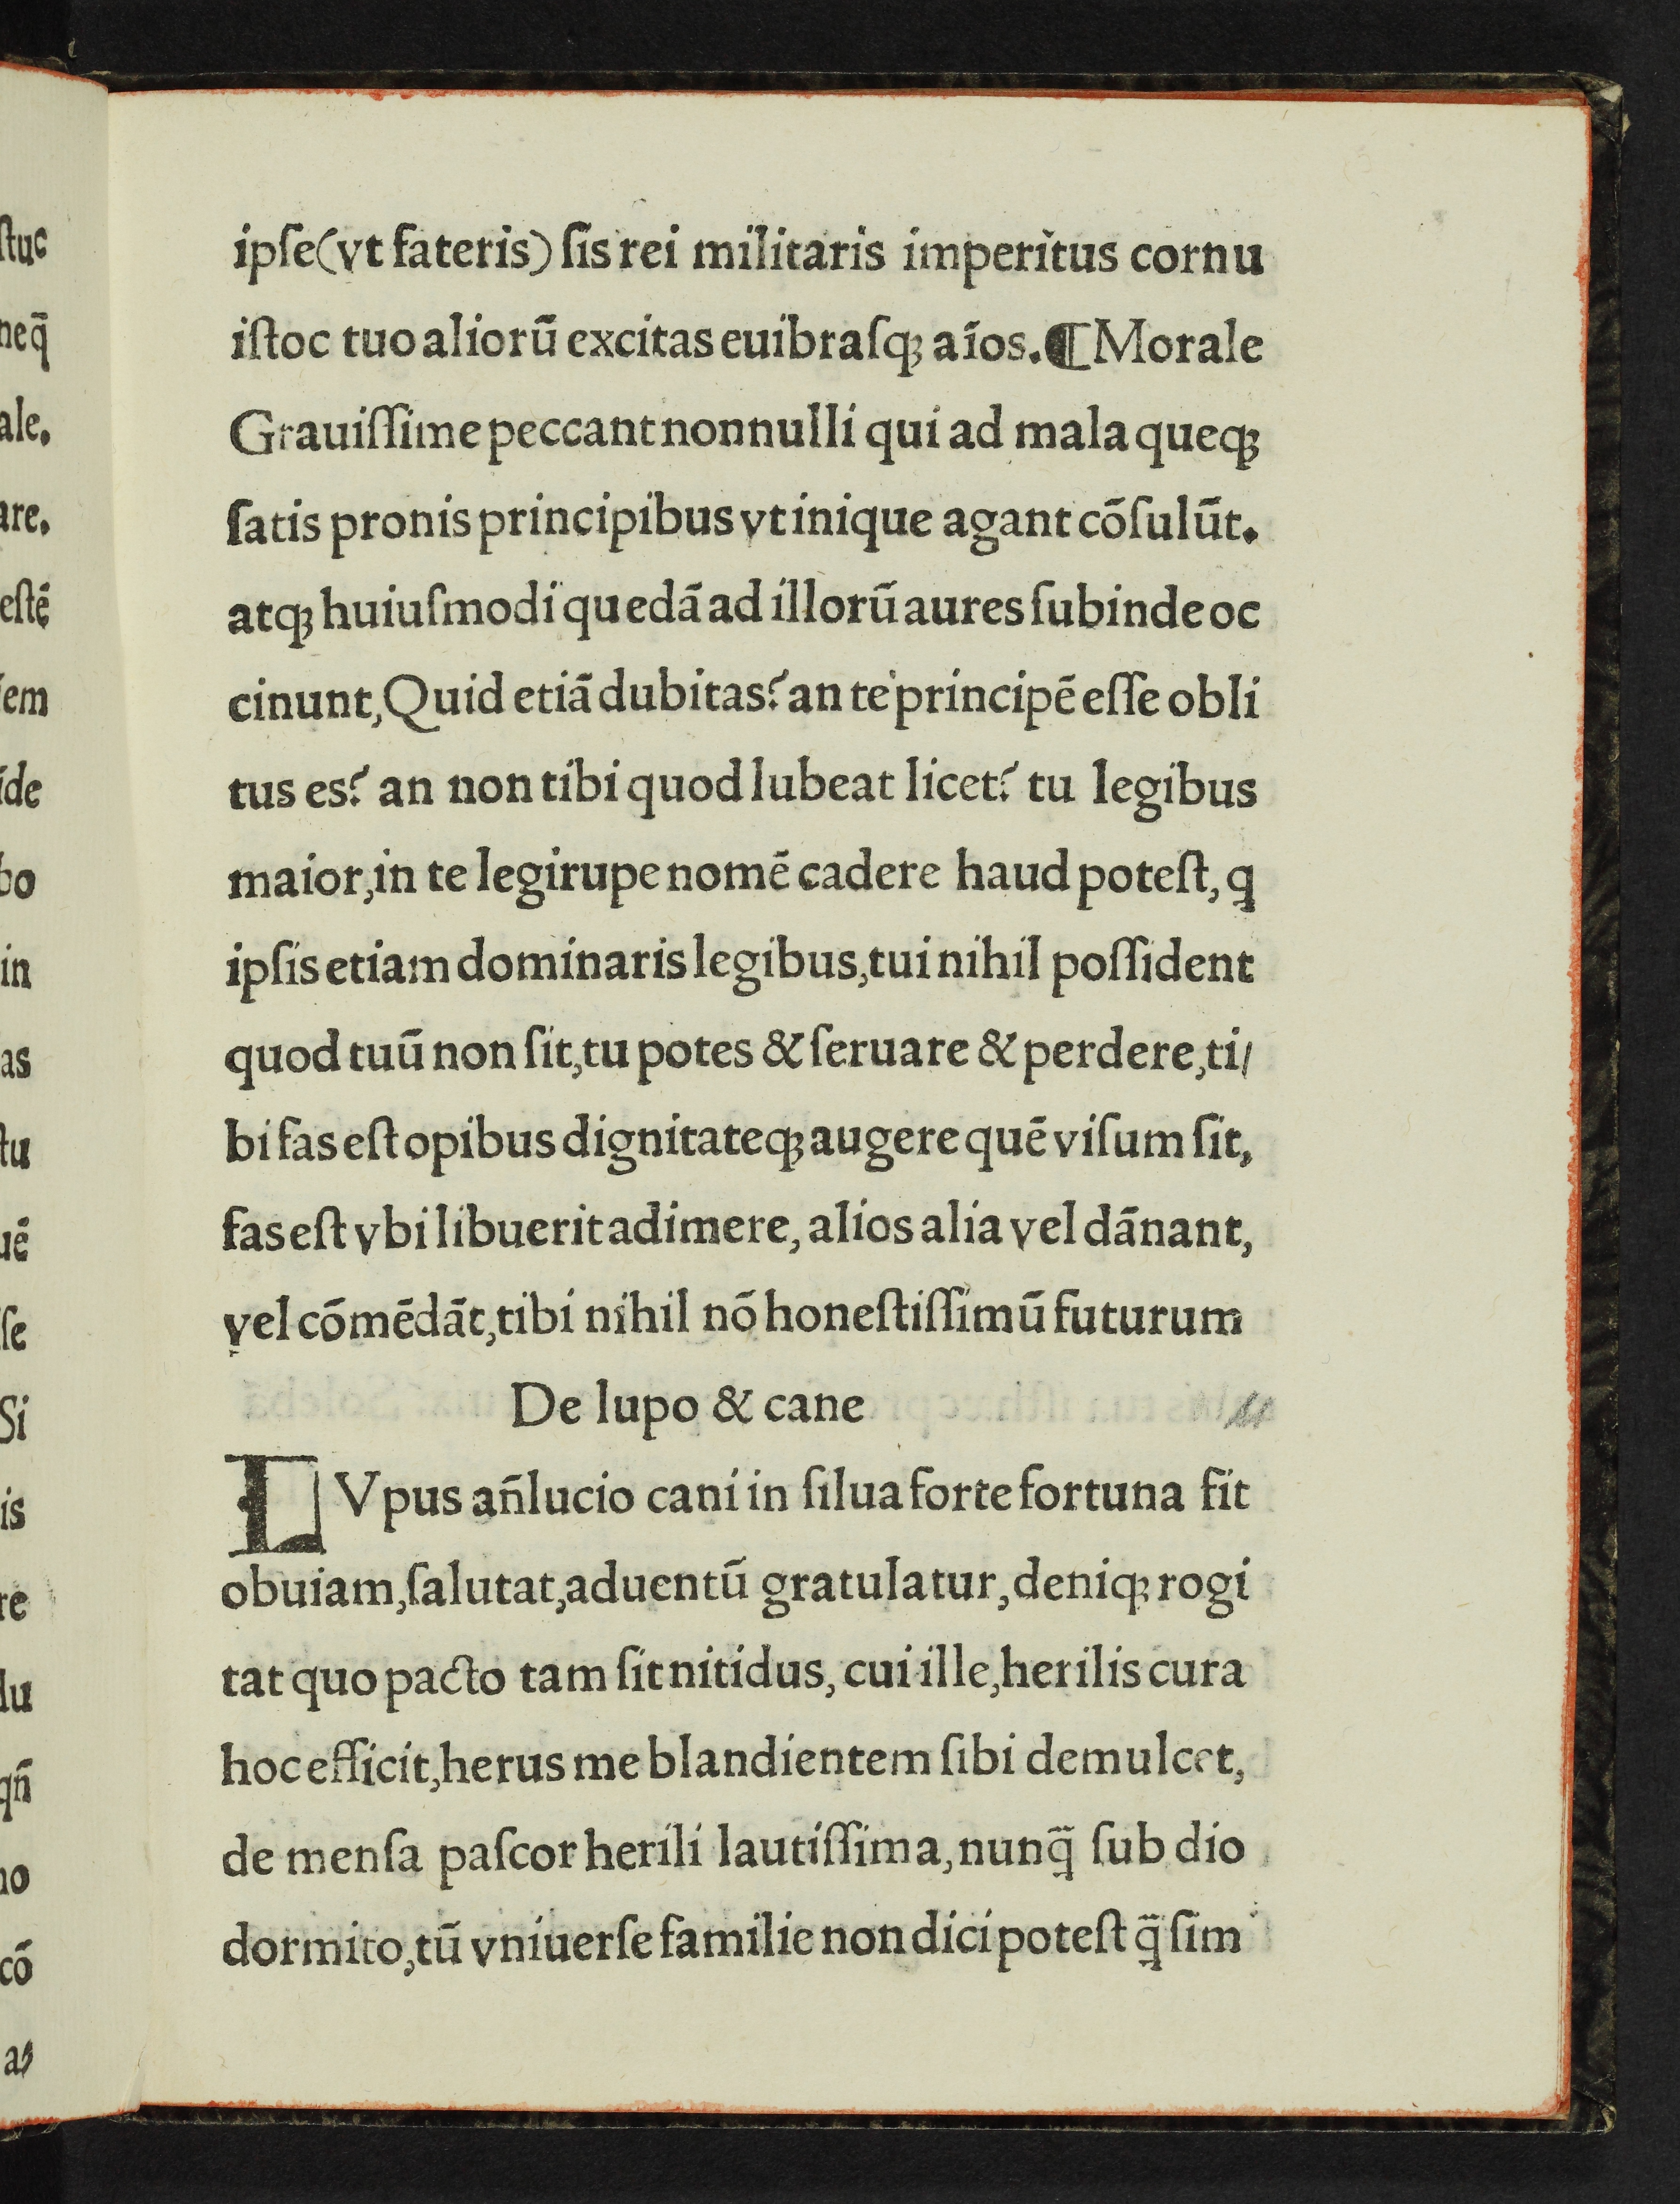 ipſe(vt fateris) ſis rei militaris imperitus cornu
iſtoc tuo aliorū excitas euibraſqꝫ aīos.¶Morale
Grauiſſime peccant nonnulli qui ad mala queqꝫ
ſatis pronis principibus vt inique agant cōſulūt.
atqꝫ huiuſmodi quedā ad illorū aures ſubinde oc
cinunt,Quid etiā dubitas? an te principē eſſe obli
tus es? an non tibi quod lubeat licet? tu legibus
maior,in te legirupe nomē cadere haud poteſt, q
ipſis etiam dominaris legibus,tui nihil poſſident
quod tuū non ſit,tu potes & ſeruare & perdere,ti/
bi fas eſt opibus dignitateqꝫ augere quē viſum ſit,
fas eſt vbi libuerit adimere, alios alia vel dānant,
vel cōmēdāt,tibi nihil nō honeſtiſſimū futurum
De lupo & cane
LVpus an̄lucio cani in ſilua forte fortuna fit
obuiam,ſalutat,aduentū gratulatur,deniqꝫ rogi
tat quo pacto tam ſit nitidus, cui ille,herilis cura
hoc efficit,herus me blandientem ſibi demulcet,
de menſa paſcor herili lautiſſima,nunq̄ ſub dio
dormito,tū vniuerſe familie non dici poteſt q̄ ſim